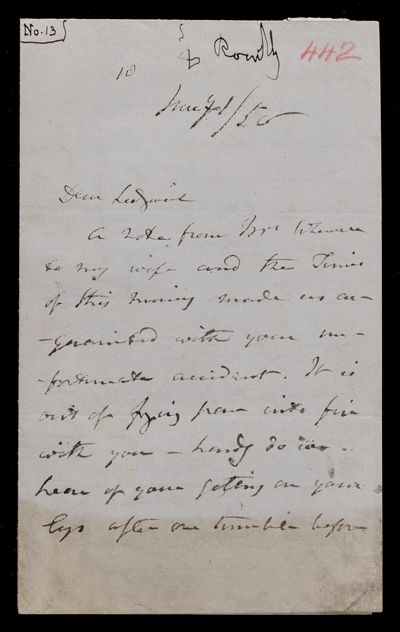 No. 13
Romilly
442
18
/50
Dear Sedgwick
A note from Mrs Whewell
to my wife and the Times
of this morning made us ac-
-quainted with your un-
-fortunate accident. It is
out of frying pan into fire
with you - hardly do we
hear of your getting on your
legs after one tumble before